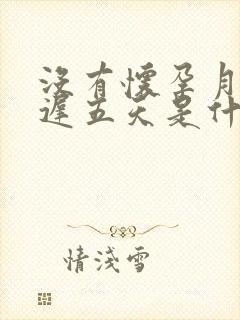 沒有懷孕月
遲五天是什
情淺雪